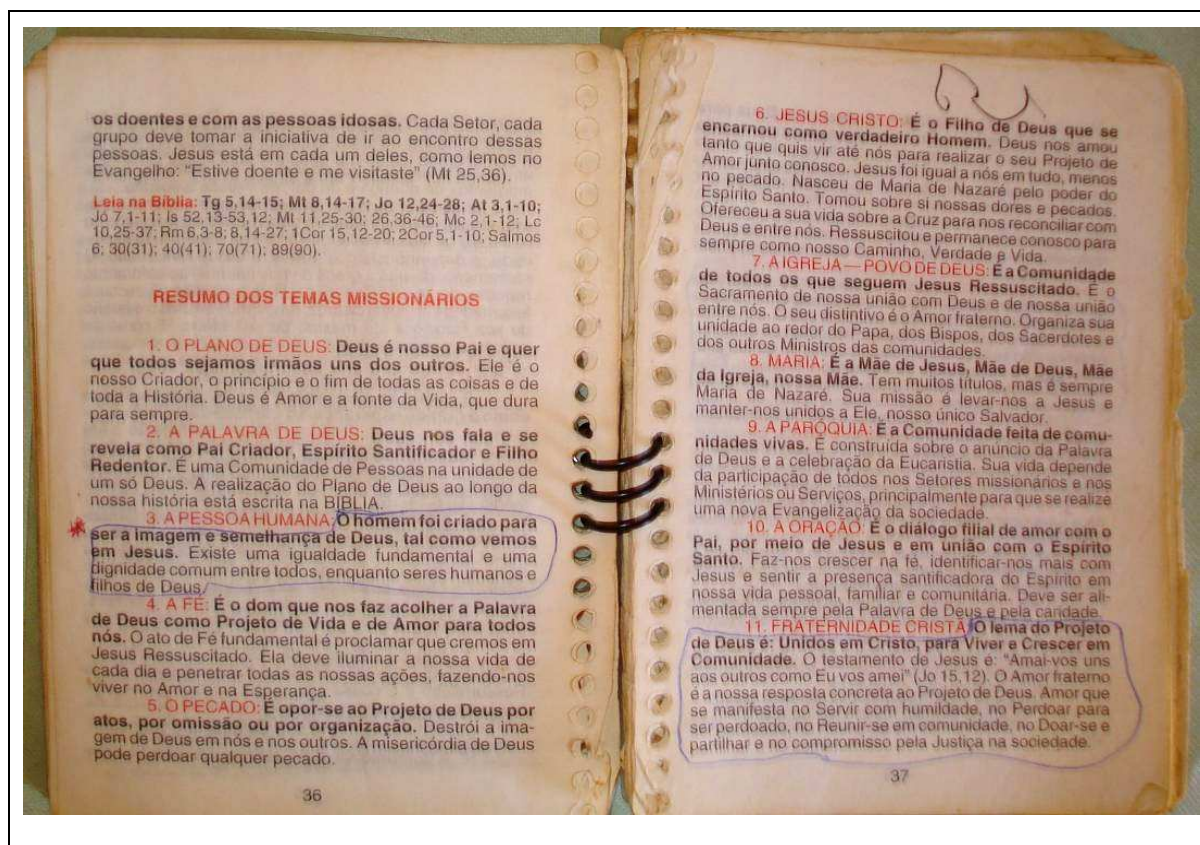 os doentes e com as pessoas idosas. Cada Setor, cada
grupo deve tomar a iniciativa de ir ao encontro dessas
pessoas. Jesus está em cada um deles, como lemos no
Evangelho: “Estive doente e me visitaste” (Mt 25,36).
Leia na Bíblia: Tg 5,14-15; Mt 8,14-17; Jo 12,24-28; At 3,1-10;
Jó 7,1-11; Is 52,13-53,12; Mt 11,25-30; 26,36-46; Mc 2,1-12; Lc
10,25-37; Rm 6,3-8; 8,14-27; 1Cor 15,12-20; 2Cor 5,1-10; Salmos
6; 30(31); 40(41); 70(71); 89(90).
RESUMO DOS TEMAS MISSIONÁRIOS
1. O PLANO DE DEUS: Deus é nosso Pai e quer
que todos sejamos irmãos uns dos outros. Ele é o
nosso Criador, o princípio e o fim de todas as coisas e de
toda a História. Deus é Amor e a fonte da Vida, que dura
para sempre.
2. A PALAVRA DE DEUS: Deus nos fala e se
revela como Pai Criador, Espírito Santificador e Filho
Redentor. É uma Comunidade de Pessoas na unidade de
um só Deus. A realização do Plano de Deus ao longo da
nossa história está escrita na BÍBLIA.
3. A PESSOA HUMANA: O homem foi criado para
ser a imagem e semelhança de Deus, tal como vemos
em Jesus. Existe uma igualdade fundamental e uma
dignidade comum entre todos, enquanto seres humanos e
filhos de Deus.
4. A FÉ: É o dom que nos faz acolher a Palavra
de Deus como Projeto de Vida e de Amor para todos
nós. O ato de Fé fundamental é proclamar que cremos em
Jesus Ressuscitado. Ela deve iluminar a nossa vida de
cada dia e penetrar todas as nossas ações, fazendo-nos
viver no Amor e na Esperança.
5. O PECADO: É opor-se ao Projeto de Deus por
atos, por omissão ou por organização. Destrói a ima-
gem de Deus em nós e nos outros. A misericórdia de Deus
pode perdoar qualquer pecado.
36
6. JESUS CRISTO: É o Filho de Deus que se
encarnou como verdadeiro Homem. Deus nos amou
tanto que quis vir até nós para realizar o seu Projeto de
Amor junto conosco. Jesus foi igual a nós em tudo, menos
no pecado. Nasceu de Maria de Nazaré pelo poder do
Espírito Santo. Tomou sobre si nossas dores e pecados.
Ofereceu a sua vida sobre a Cruz para nos reconciliar com
Deus e entre nós. Ressuscitou e permanece conosco para
sempre como nosso Caminho, Verdade e Vida.
7. A IGREJA — POVO DE DEUS: É a Comunidade
de todos os que seguem Jesus Ressuscitado. É o
Sacramento de nossa união com Deus e de nossa união
entre nós. O seu distintivo é o Amor fraterno. Organiza sua
unidade ao redor do Papa, dos Bispos, dos Sacerdotes e
dos outros Ministros das comunidades.
8. MARIA: É a Mãe de Jesus, Mãe de Deus, Mãe
da Igreja, nossa Mãe. Tem muitos títulos, mas é sempre
Maria de Nazaré. Sua missão é levar-nos a Jesus e
manter-nos unidos a Ele, nosso único Salvador.
9. A PARÓQUIA: É a Comunidade feita de comu-
nidades vivas. É construída sobre o anúncio da Palavra
de Deus e a celebração da Eucaristia. Sua vida depende
da participação de todos nos Setores missionários e nos
Ministérios ou Serviços, principalmente para que se realize
uma nova Evangelização da sociedade.
10. A ORAÇÃO: É o diálogo filial de amor com o
Pai, por meio de Jesus e em união com o Espírito
Santo. Faz-nos crescer na fé, identificar-nos mais com
Jesus e sentir a presença santificadora do Espírito em
nossa vida pessoal, familiar e comunitária. Deve ser ali-
mentada sempre pela Palavra de Deus e pela caridade.
11. FRATERNIDADE CRISTÃ: O lema do Projeto
de Deus é: Unidos em Cristo, para Viver e Crescer em
Comunidade. O testamento de Jesus é: “Amai-vos uns
aos outros como Eu vos amei” (Jo 15,12). O Amor fraterno
é a nossa resposta concreta ao Projeto de Deus. Amor que
se manifesta no Servir com humildade, no Perdoar para
ser perdoado, no Reunir-se em comunidade, no Doar-se e
partilhar e no compromisso pela Justiça na sociedade.
37